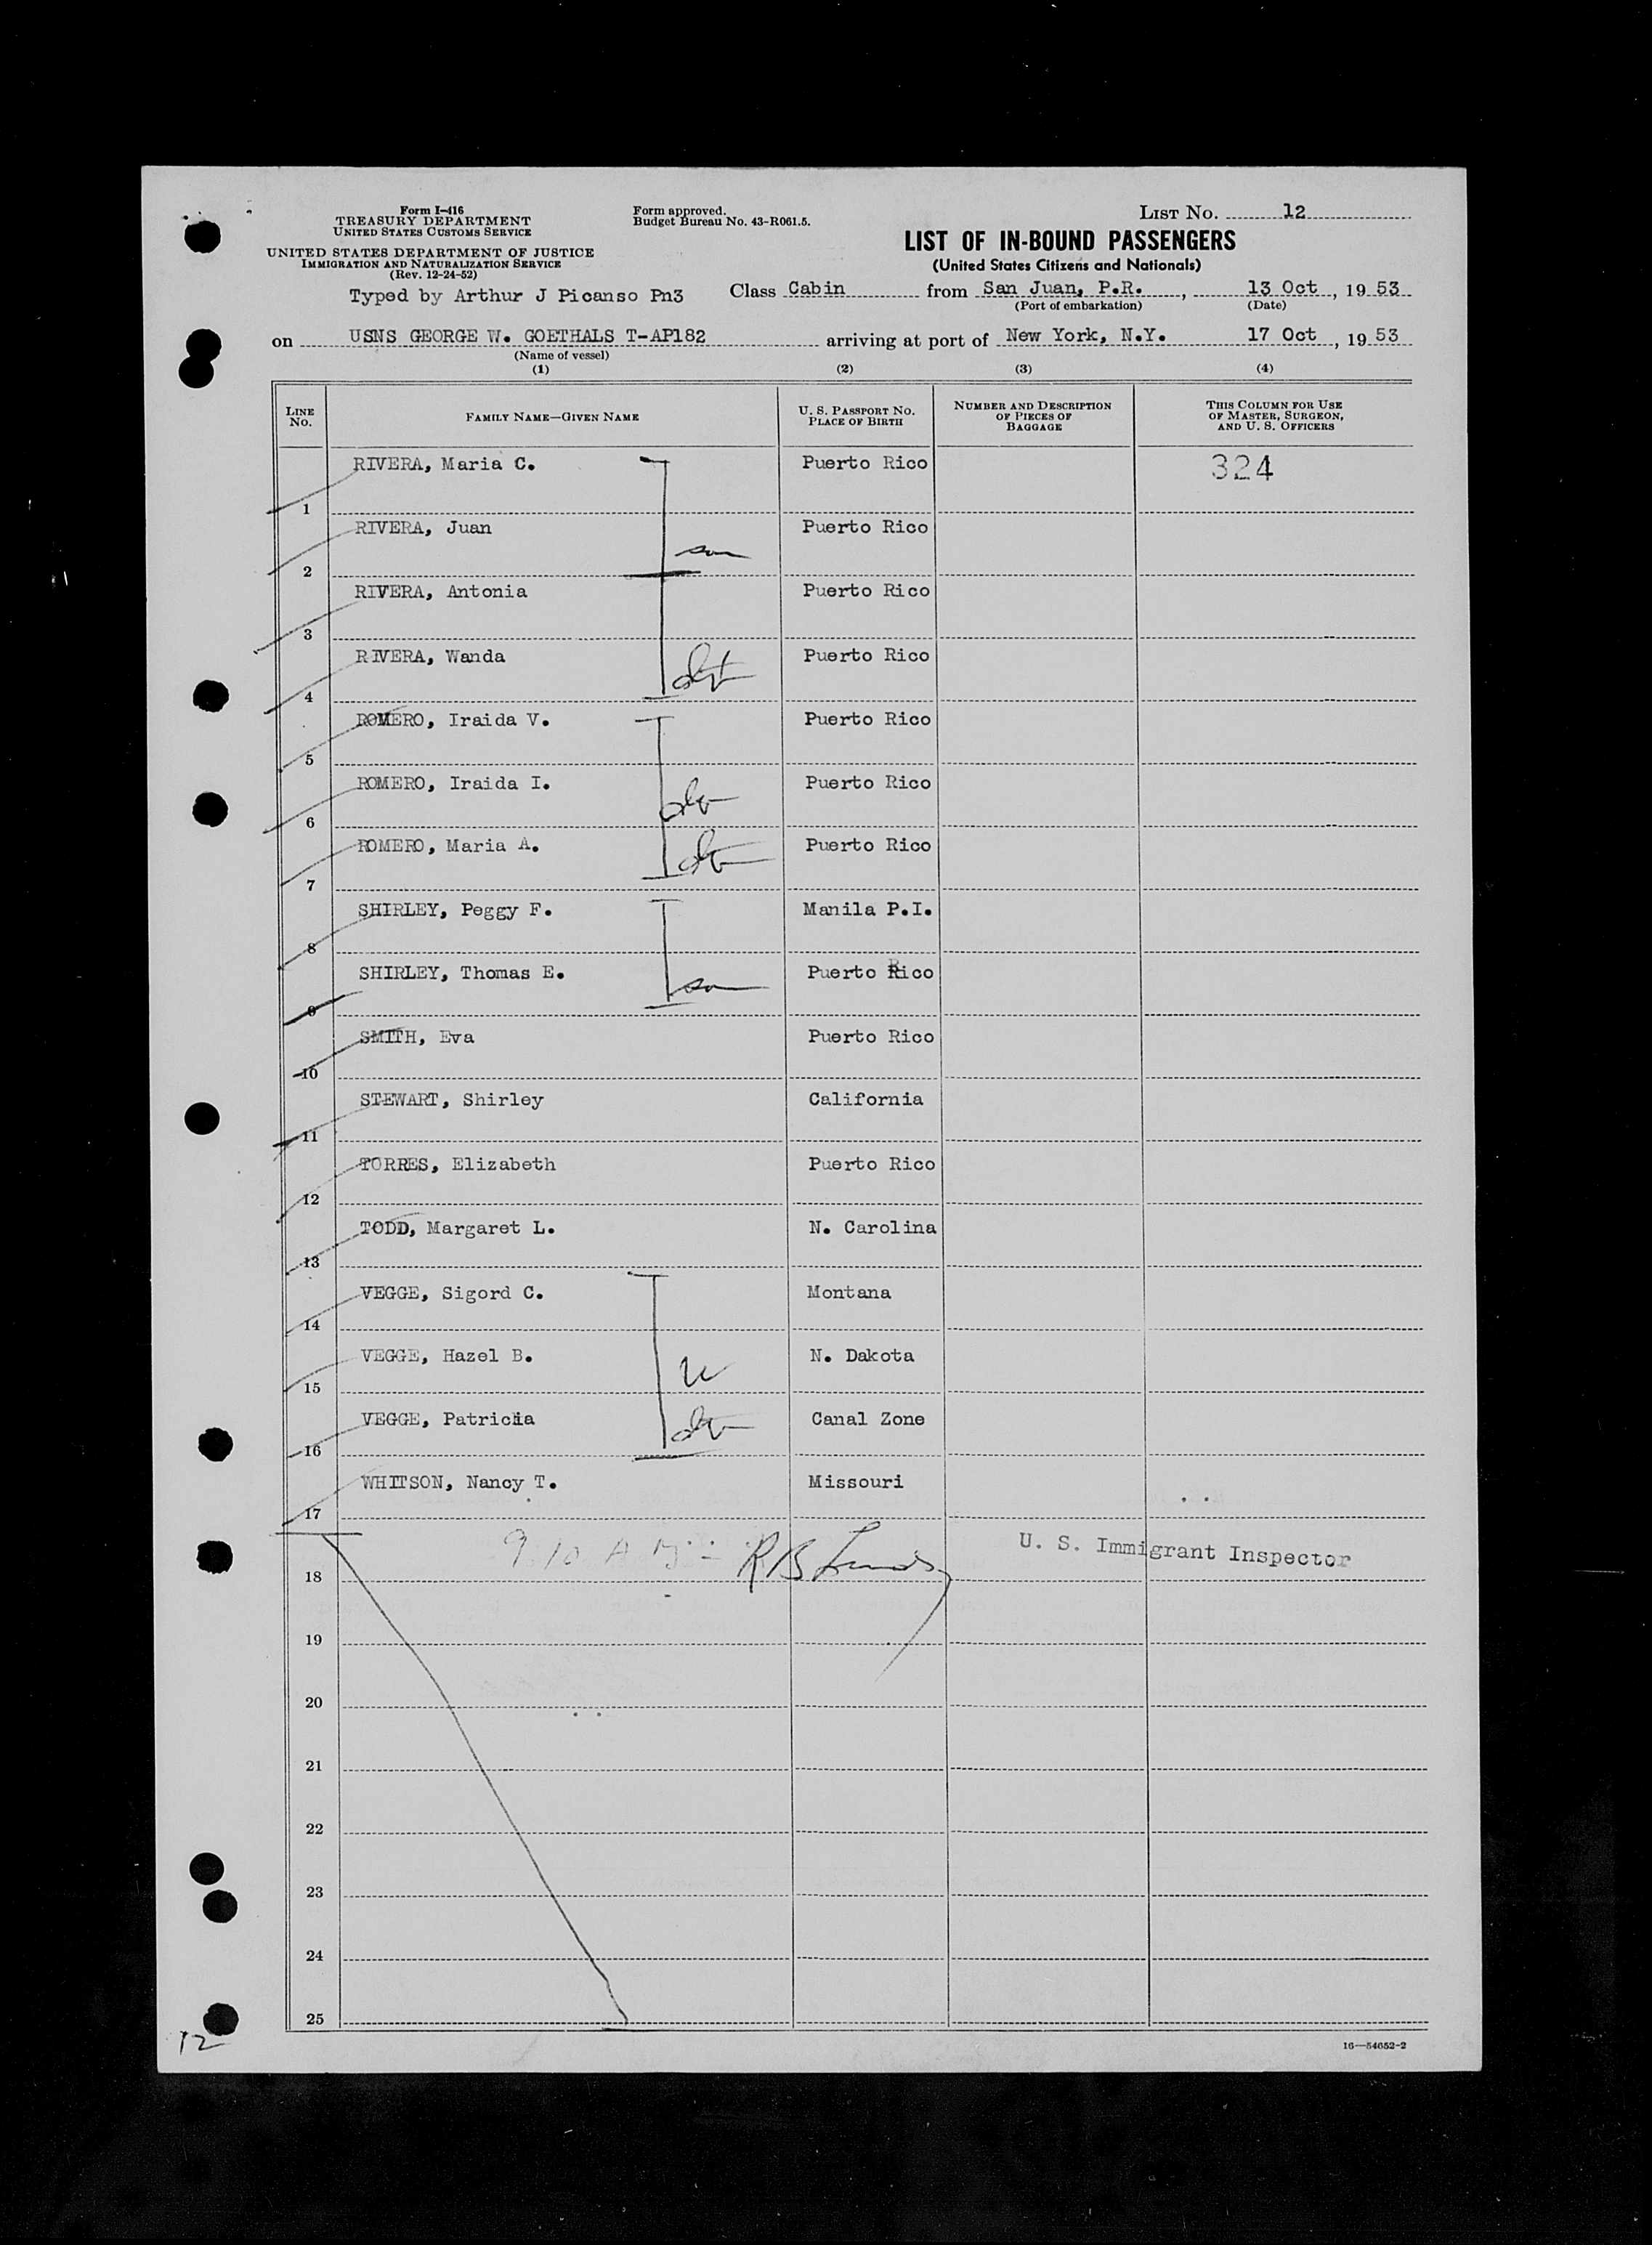 Form I-416
TREASURY DEPARTMENT
UNITED STATES CUSTOMS SERVICE
UNITED STATES DEPARTMENT OF JUSTICE
IMMIGRATION AND NATURALIZATION SERVICE
(Rev. 12-24-52)
Typed by Arthur J Picanso Pn3
Form approved.
Budget Bureau No. 43-R061.5.
LIST NO. 12
LIST OF IN-BOUND PASSENGERS
(United States Citizens and Nationals)
Class Cabin from San Juan, P.R., 13 Oct, 1953
(Port of embarkation) (Date)
on USNS GEORGE W. GOETHALS T-AP182 arriving at port of New York, N.Y. 17 Oct, 1953
(Name of vessel)
(1) (2) (3) (4)
LINE NO. FAMILY NAME—GIVEN NAME U. S. PASSPORT NO. PLACE OF BIRTH NUMBER AND DESCRIPTION OF PIECES OF BAGGAGE THIS COLUMN FOR USE OF MASTER, SURGEON, AND U. S. OFFICERS
1 RIVERA, Maria C. Puerto Rico 324
2 RIVERA, Juan son Puerto Rico
3 RIVERA, Antonia Puerto Rico
4 RIVERA, Wanda Puerto Rico
5 ROMERO, Iraida V. Puerto Rico
6 ROMERO, Iraida I. Puerto Rico
7 ROMERO, Maria A. Puerto Rico
8 SHIRLEY, Peggy F. Manila P.I.
9 SHIRLEY, Thomas E. son Puerto Rico
10 SMITH, Eva Puerto Rico
11 STEWART, Shirley California
12 TORRES, Elizabeth Puerto Rico
13 TODD, Margaret L. N. Carolina
14 VEGGE, Sigord C. Montana
15 VEGGE, Hazel B. N. Dakota
16 VEGGE, Patricia Canal Zone
17 WHITSON, Nancy T. Missouri
18 R B U. S. Immigrant Inspector
19
20
21
22
23
24
25
12
16—54652-2